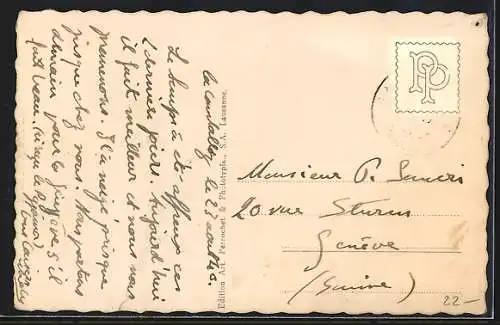 le 23 août 46.
Le temps a été affreux ces
2 derniers jours. Aujourd'hui
il fait meilleur et nous nous
promenons. Il a neigé presque
jusque chez nous. Nous partons
demain pour le s'il
fait beau.
Edition Art. Perrochet & Phototypie S.A. Lausanne.
PP
Monsieur P.
20 rue Sturm
Genève
(Suisse)
22-